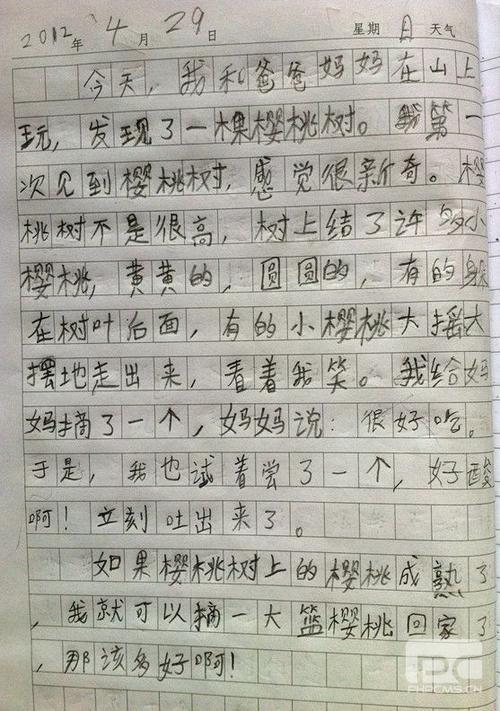 2012年4月29日 星期日 天气
今天，我和爸爸妈妈在山上
玩，发现了一棵樱桃树。我第一
次见到樱桃树，感觉很新奇。樱
桃树不是很高，树上结了许多小
樱桃，黄黄的，圆圆的，有的躲
在树叶后面，有的小樱桃大摇大
摆地走出来，看着我笑。我给妈
妈摘了一个，妈妈说：很好吃。
于是，我也试着尝了一个，好酸
啊！立刻吐出来了。
如果樱桃树上的樱桃成熟了
，我就可以摘一大篮樱桃回家了
，那该多好啊！
PHPCMS.CN